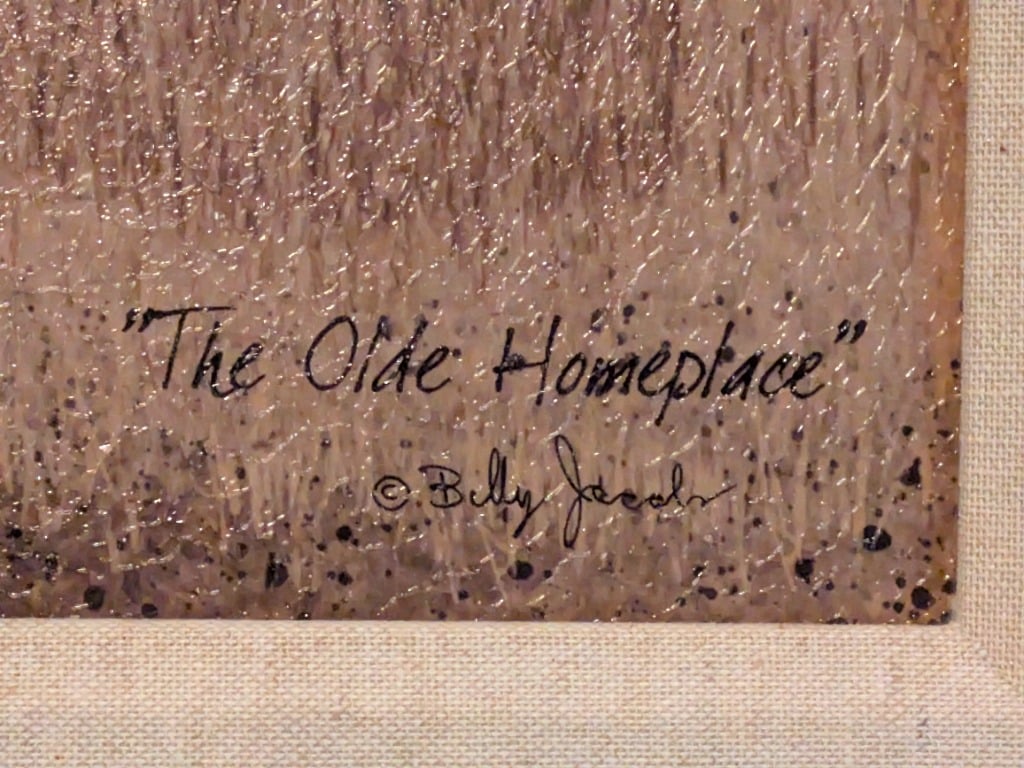 "The Olde Homeplace"
© Billy Jacobs